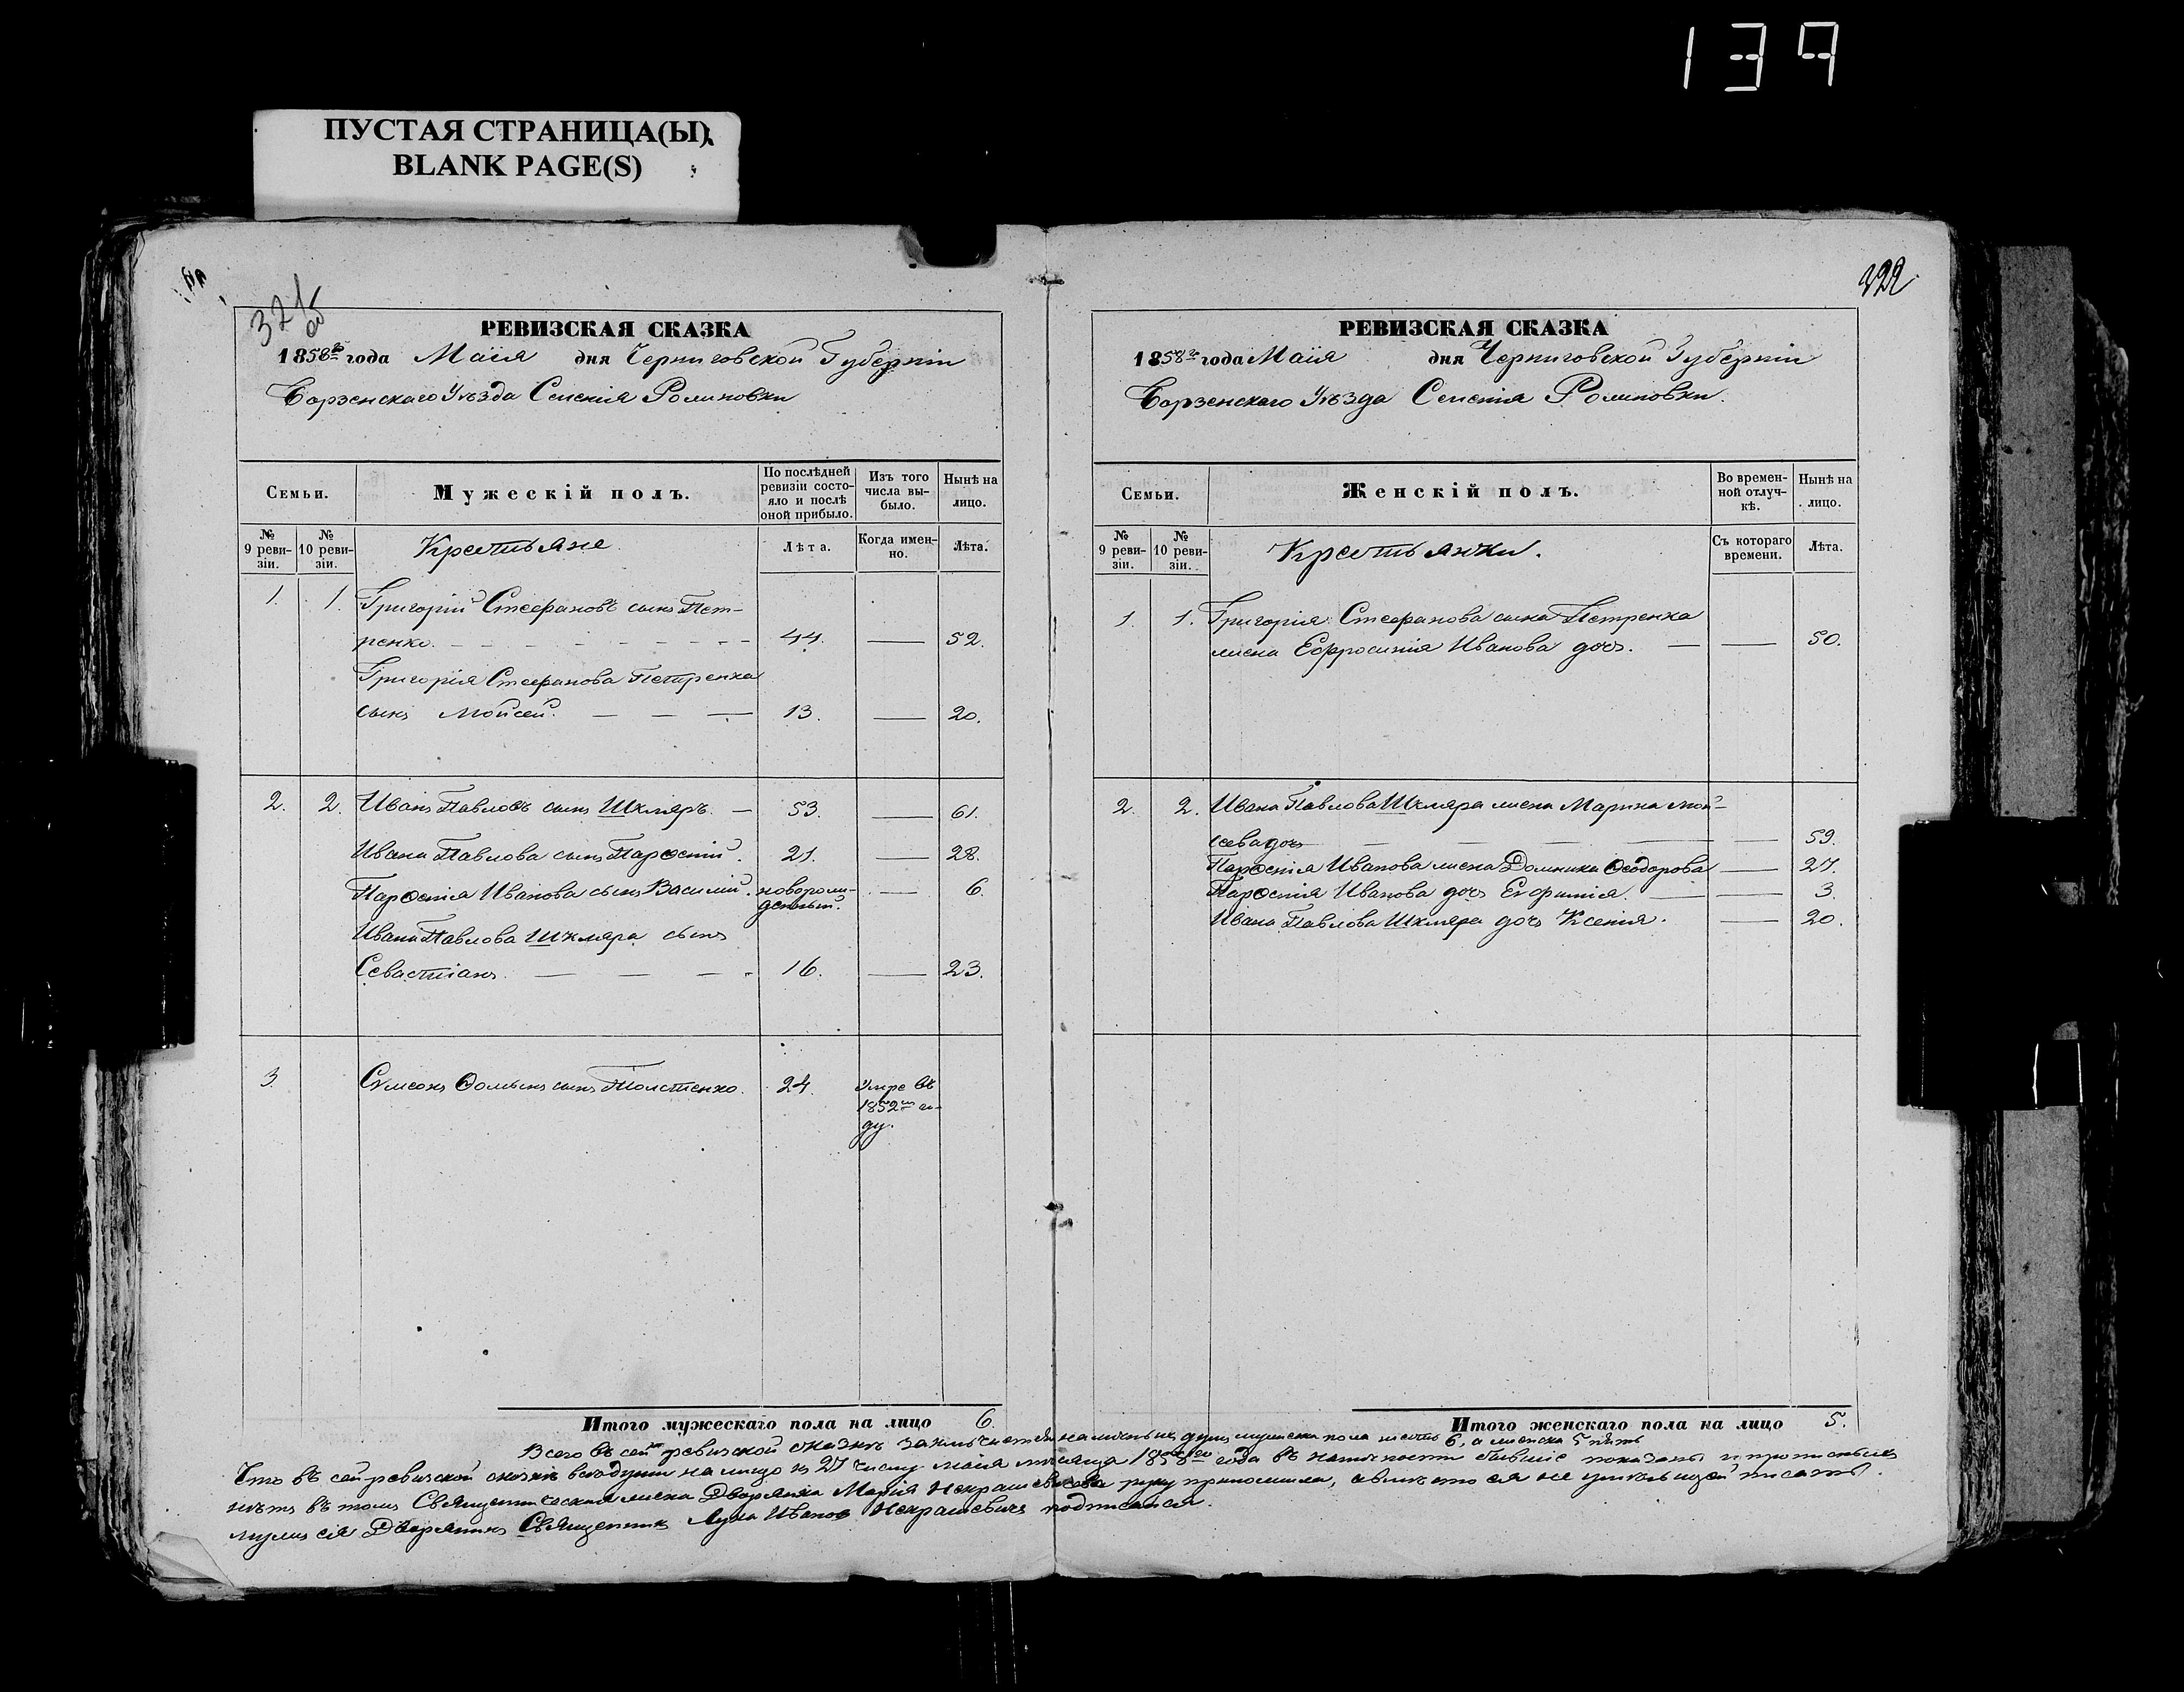 139
ПУСТАЯ СТРАНИЦА(Ы)
BLANK PAGE(S)
321
об
РЕВИЗСКАЯ СКАЗКА
1858го года Маія дня Черниговской Губерніи
Борзенскаго Уѣзда Селенія Ромновки
Семьи.
Мужескій полъ.
По послѣдней ревизіи состояло и послѣ оной прибыло.
Изъ того числа выбыло.
Нынѣ на лицо.
№ 9 ревизіи.
№ 10 ревизіи.
Крестьяне.
Лѣта.
Когда именно.
Лѣта.
1. 1. Григорій Стефановъ сынъ Пет-
ренко. 44. — 52.
Григорія Стефанова Петренка
сынъ Мойсей. 13. — 20.
2. 2. Иванъ Павловъ сынъ Шкляръ. — 53. — 61.
Ивана Павлова сынъ Парѳеній. 21. — 28.
Парѳенія Иванова сынъ Василій. новорож-
денный. — 6.
Ивана Павлова Шкляра сынъ
Севастіанъ. 16. — 23.
3. Сѵмеонъ Ѳоминъ сынъ Толстенко. 24. Умре въ
1852мъ го-
ду.
Итого мужескаго пола на лицо 6.
322
РЕВИЗСКАЯ СКАЗКА
1858го года Маія дня Черниговской Губерніи
Борзенскаго Уѣзда Селенія Ромновки.
Семьи.
Женскій полъ.
Во временной отлучкѣ.
Нынѣ на лицо.
№ 9 ревизіи.
№ 10 ревизіи.
Крестьянки.
Съ котораго времени.
Лѣта.
1. 1. Григорія Стефанова сына Петренка
жена Ефросинія Иванова дочь. — 50.
2. 2. Ивана Павлова Шкляра жена Марина Мой-
сева дочь — 59.
Парѳенія Иванова жена Домника Ѳеодорова — 27.
Парѳенія Иванова дочь Евфимія. — 3.
Ивана Павлова Шкляра дочь Ксенія. — 20.
Итого женскаго пола на лицо 5.
Всего въ сей ревизской сказкѣ заключается наличныхъ душъ мужеска пола шесть 6, а женска 5 пять
Что въ сей ревизской сказкѣ всѣ души на лицо къ 27 числу маія мѣсяца 1858го года въ наличности бывшіе показаны и прописныхъ
нѣтъ въ томъ Священническая жена Дворянка Марія Некрашевичева руку приложила, а вмѣсто ея не умѣющей писать
мужъ ея Дворянинъ Священникъ Лука Ивановъ Некрашевичъ подписался.